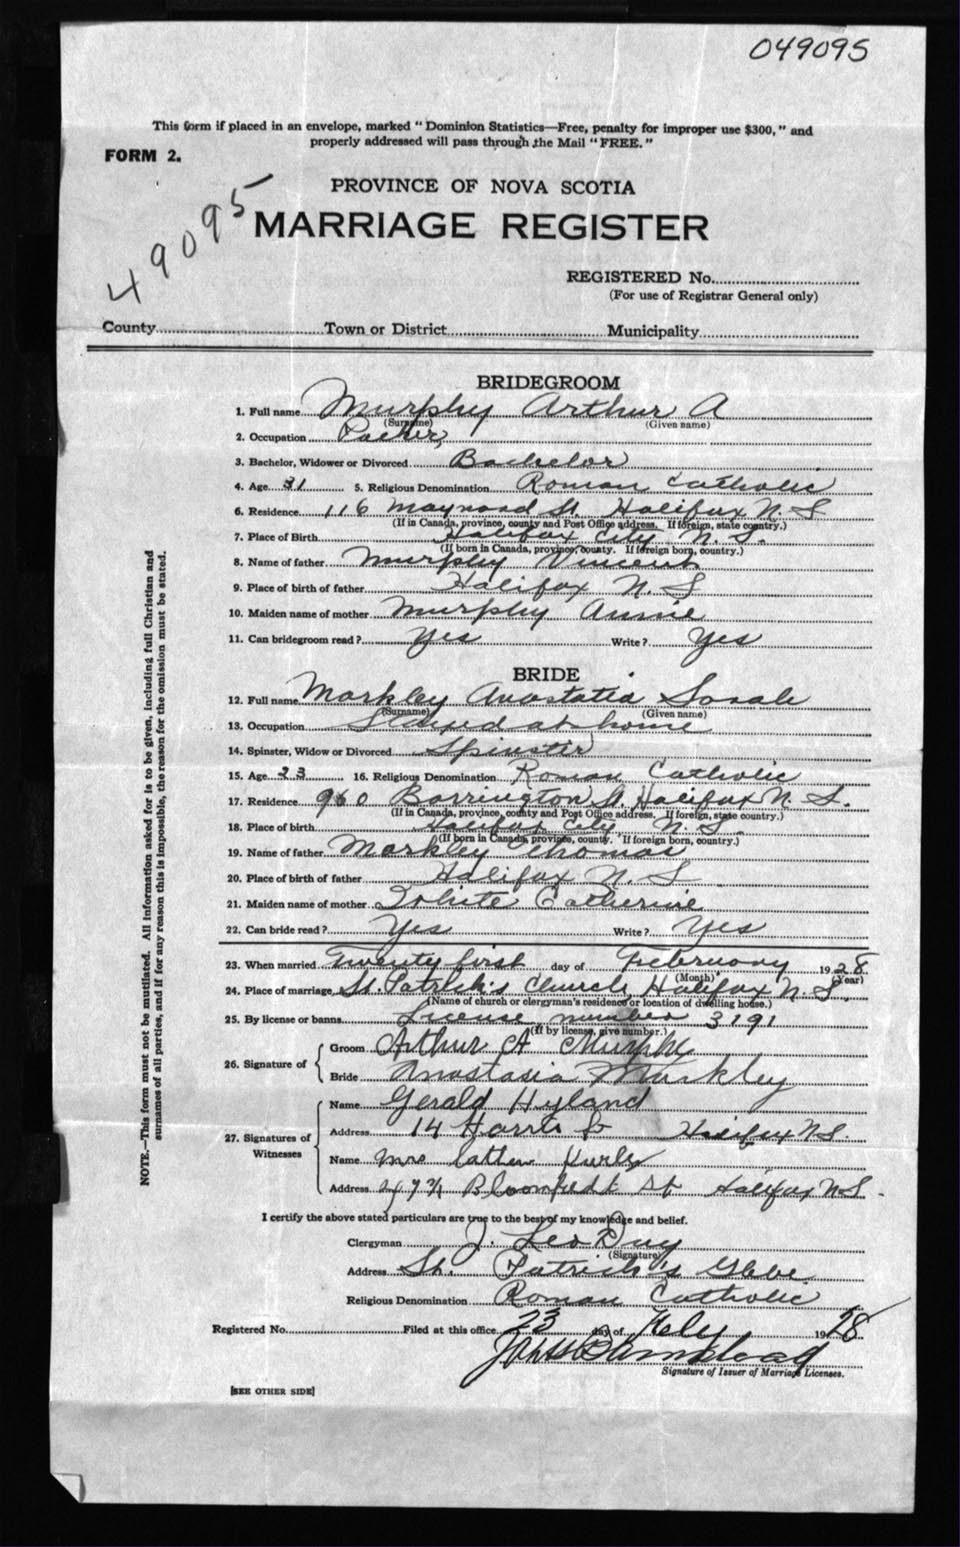 049095
This form if placed in an envelope, marked "Dominion Statistics—Free, penalty for improper use $300," and
properly addressed will pass through the Mail "FREE."
FORM 2.
49095
PROVINCE OF NOVA SCOTIA
MARRIAGE REGISTER
REGISTERED No.
(For use of Registrar General only)
County Town or District Municipality
BRIDEGROOM
1. Full name Murphy Arthur A
(Surname) (Given name)
2. Occupation Packer
3. Bachelor, Widower or Divorced Bachelor
4. Age 31 5. Religious Denomination Roman Catholic
6. Residence 116 Maynard St. Halifax N. S
(If in Canada, province, county and Post Office address. If foreign, state country.)
7. Place of Birth Halifax City N. S.
(If born in Canada, province, county. If foreign born, country.)
8. Name of father Murphy Vincent
9. Place of birth of father Halifax N. S
10. Maiden name of mother Murphy Annie
11. Can bridegroom read? Yes Write? Yes
BRIDE
12. Full name Markley Anastatia Sarah
(Surname) (Given name)
13. Occupation Stayed at home
14. Spinster, Widow or Divorced Spinster
15. Age 23 16. Religious Denomination Roman Catholic
17. Residence 960 Barrington St. Halifax N. S.
(If in Canada, province, county and Post Office address. If foreign, state country.)
18. Place of birth Halifax City N. S.
(If born in Canada, province, county. If foreign born, country.)
19. Name of father Markley Thomas
20. Place of birth of father Halifax N. S
21. Maiden name of mother White Catherine
22. Can bride read? Yes Write? Yes
23. When married Twenty first day of February 1928
(Month) (Year)
24. Place of marriage St. Patrick's Church, Halifax N. S.
(Name of church or clergyman's residence or location of dwelling house.)
25. By license or banns License number 3191
(If by license, give number.)
26. Signature of Groom Arthur A Murphy
Bride Anastasia Markley
27. Signatures of Witnesses
Name Gerald Hyland
Address 14 Harris St Halifax N.S.
Name Mrs
Address Bloomfield St Halifax N.S.
I certify the above stated particulars are true to the best of my knowledge and belief.
Clergyman J. Leo
(Signature)
Address St. Patrick's Glebe
Religious Denomination Roman Catholic
Registered No. Filed at this office 23 day of Feby 1928
Signature of Issuer of Marriage Licenses.
[SEE OTHER SIDE]
NOTE.—This form must not be mutilated. All information asked for is to be given, including full Christian and
surnames of all parties, and if for any reason this is impossible, the reason for the omission must be stated.